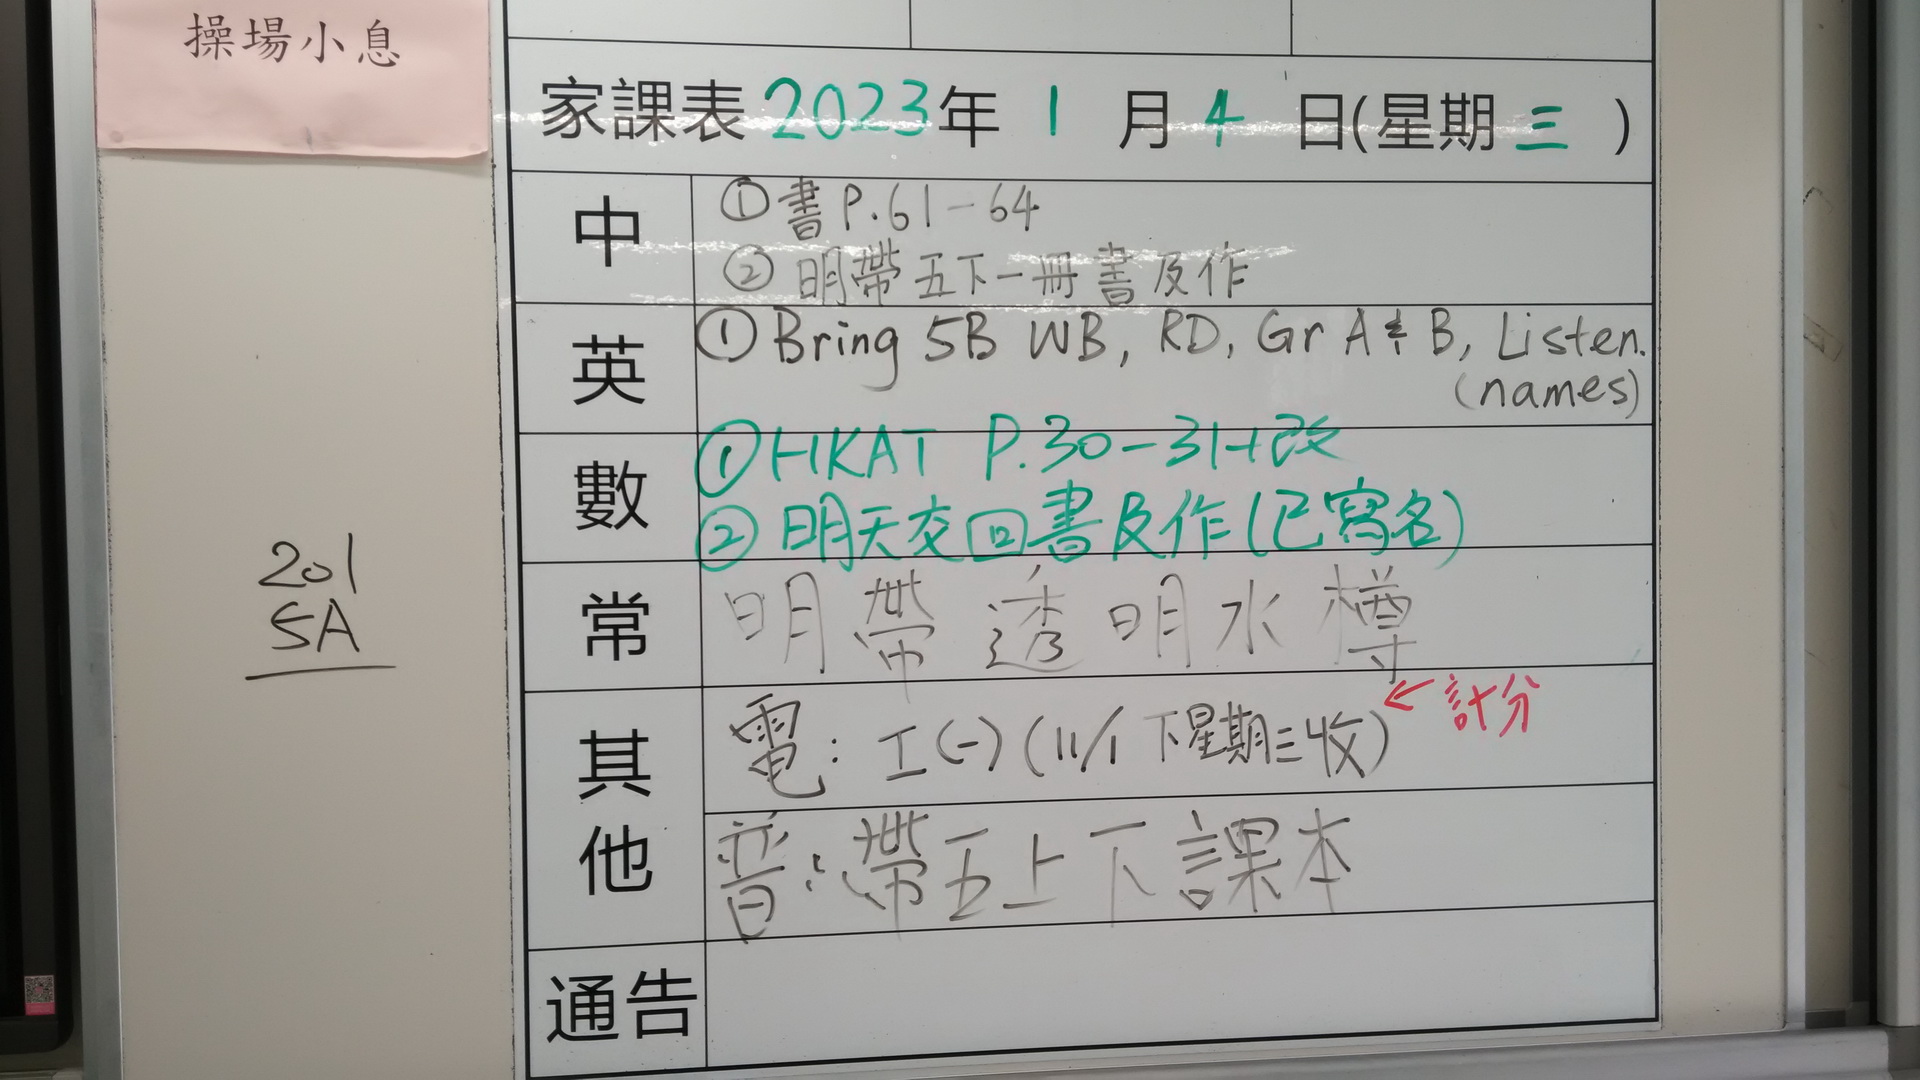 操場小息
家課表 2023年 1 月 4 日(星期 三 )
中
① 書 P.61-64
② 明帶五下一冊書及作
英
① Bring 5B WB, RD, Gr A & B, Listen.
(names)
數
① HKAT P.30-31+改
② 明天交回書及作(已寫名)
常
明帶透明水樽
其他
電: 工(一)(11/1 下星期三收) ← 計分
普: 帶五上下課本
通告
201
5A